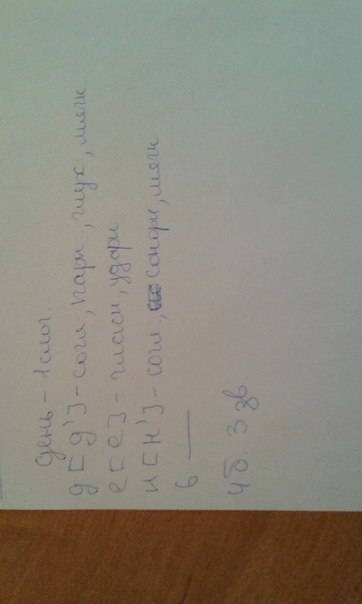 день - 1 слог
д [д'] - согл, парн, глух, мягк
е [е] - гласн, ударн
н [н'] - согл, сонорн, мягк
ь ——
4б 3 зв